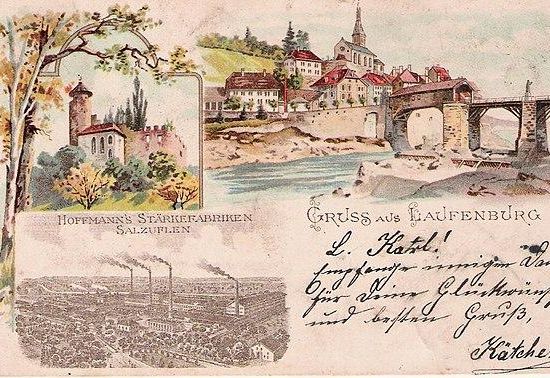 HOFFMANN'S STÄRKEFABRIKEN
SALZUFLEN
GRUSS AUS LAUFENBURG
L. Katl!
Empfange innigen Dan
für Deine Glückwüns
und besten Gruß,
Kätche